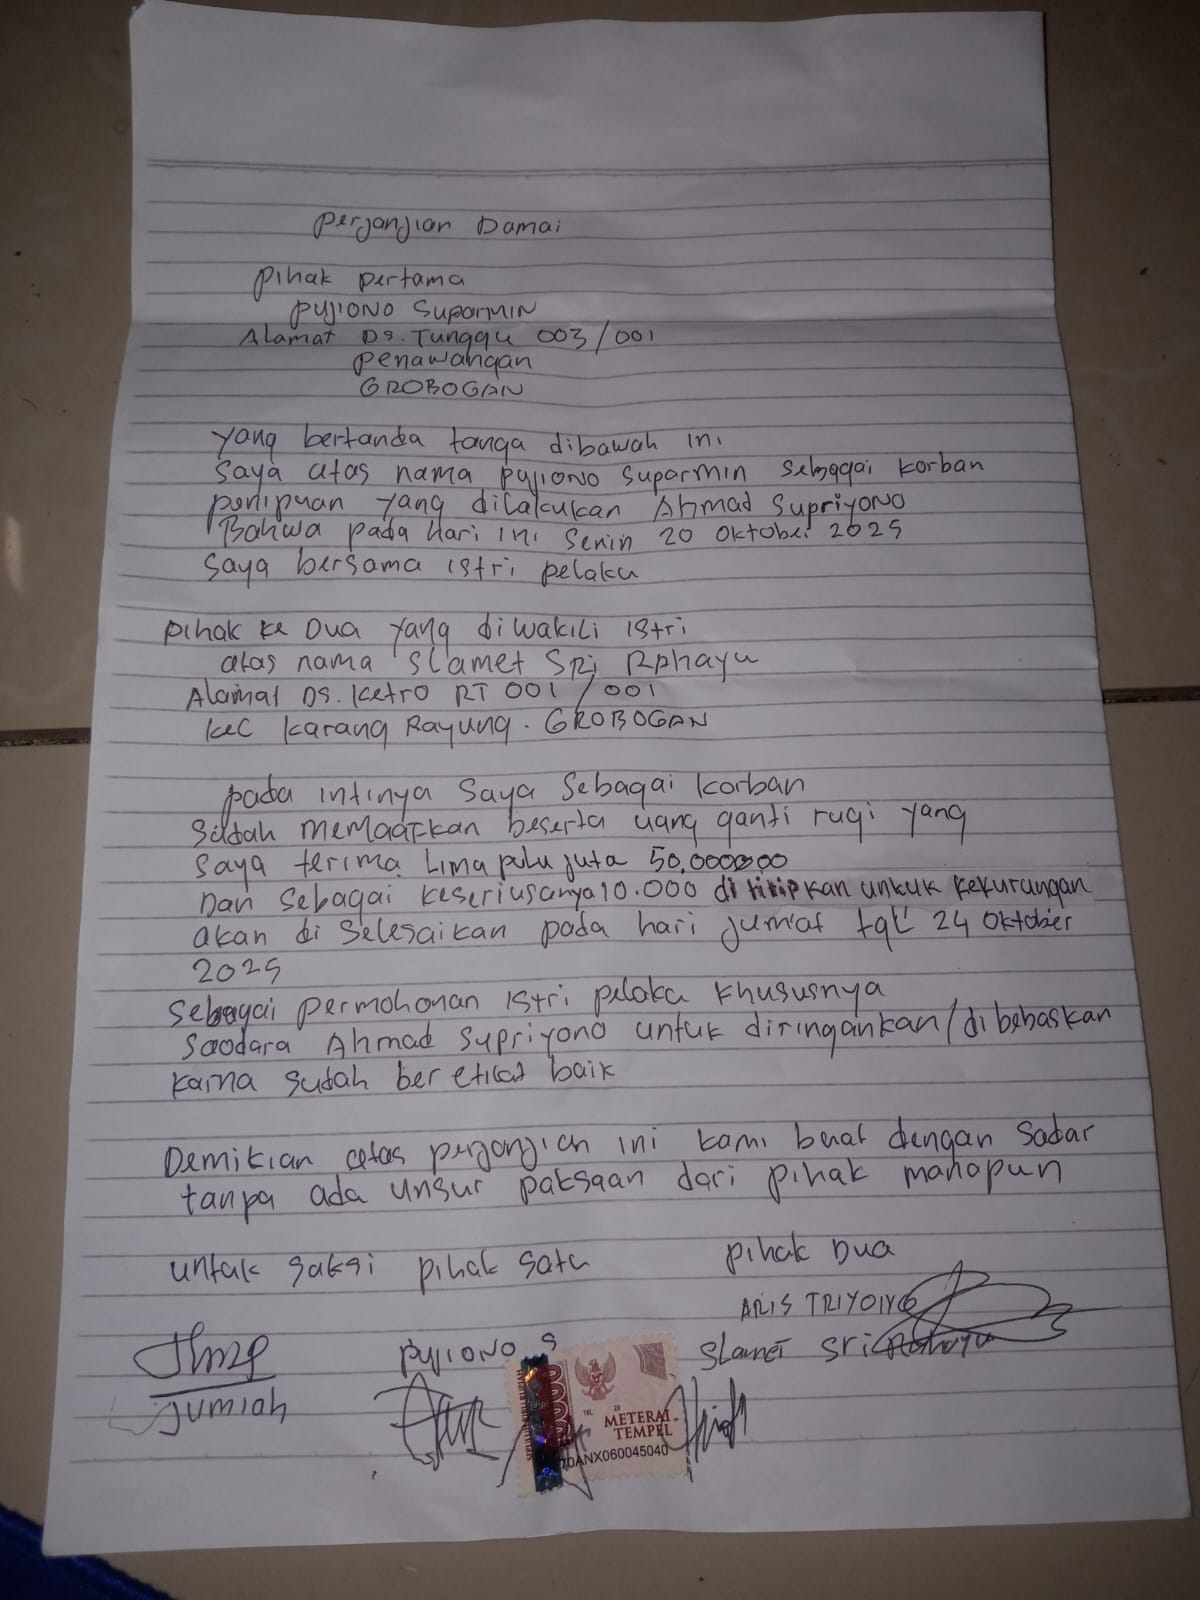 Perjanjian Damai
Pihak pertama
PUJIONO SUPARMIN
Alamat Ds. Tunggu 003/001
Penawangan
GROBOGAN
Yang bertanda tanga dibawah ini
Saya atas nama PUJIONO Suparmin sebagai korban
penipuan yang dilakukan Ahmad SupriyONO
Bahwa pada Hari ini Senin 20 Oktober 2025
Saya bersama istri pelaku
Pihak ke Dua yang diwakili istri
atas nama SLAMET SRI Rahayu
Alamat Ds. Ketro RT 001/001
Kec Karang Rayung. GROBOGAN
pada intinya Saya Sebagai Korban
Sudah memaafkan beserta uang ganti rugi yang
Saya terima Lima pulu juta 50.000000
Dan Sebagai keseriusanya 10.000 di titipkan untuk kekurangan
akan di selesaikan pada hari jum'at tgl 24 Oktober
2025
Sebagai permohonan istri pelaku Khususnya
Saodara Ahmad Supriyono untuk diringankan/dibebaskan
Karna sudah ber etikat baik
Demikian atas perjanjian ini kami buat dengan sadar
tanpa ada unsur paksaan dari pihak manapun
untuk saksi pihak satu pihak Dua
ARIS TRIYONO
PUJIONO S Slamet Sri Rahayu
Jumiah
METERAI
TEMPEL
70ANX060045040